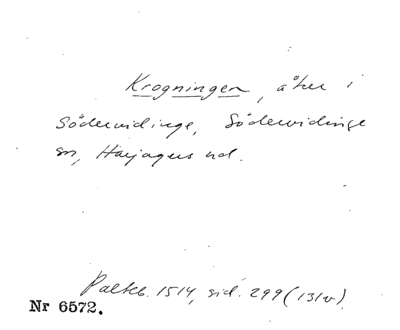 Krogningen, åker i
Södervidinge, Södervidinge
sn, Harjagers hd.
Palteb. 1514, sid. 299 (131v).
Nr 6572.